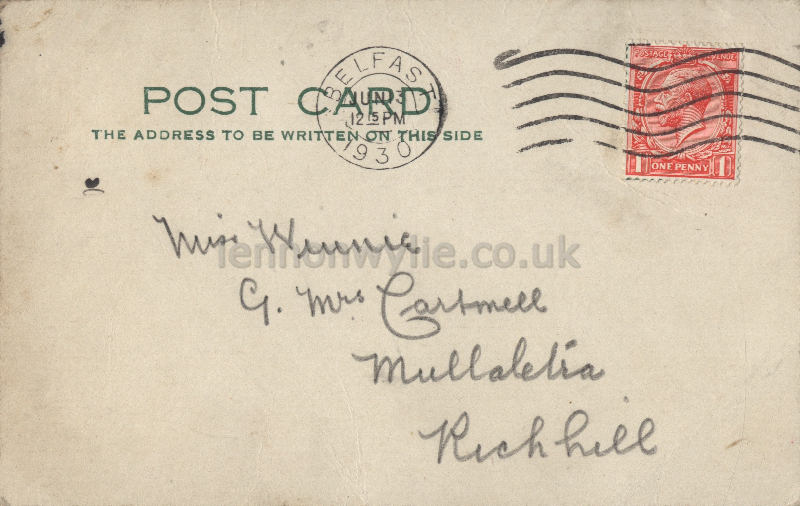 POST CARD
THE ADDRESS TO BE WRITTEN ON THIS SIDE
BELFAST
JUN 3
12 15 PM
1930
POSTAGE REVENUE
1 ONE PENNY 1
Miss Winnie
lennonwylie.co.uk
G. Mrs Cartmell
Mullaletra
Richhill